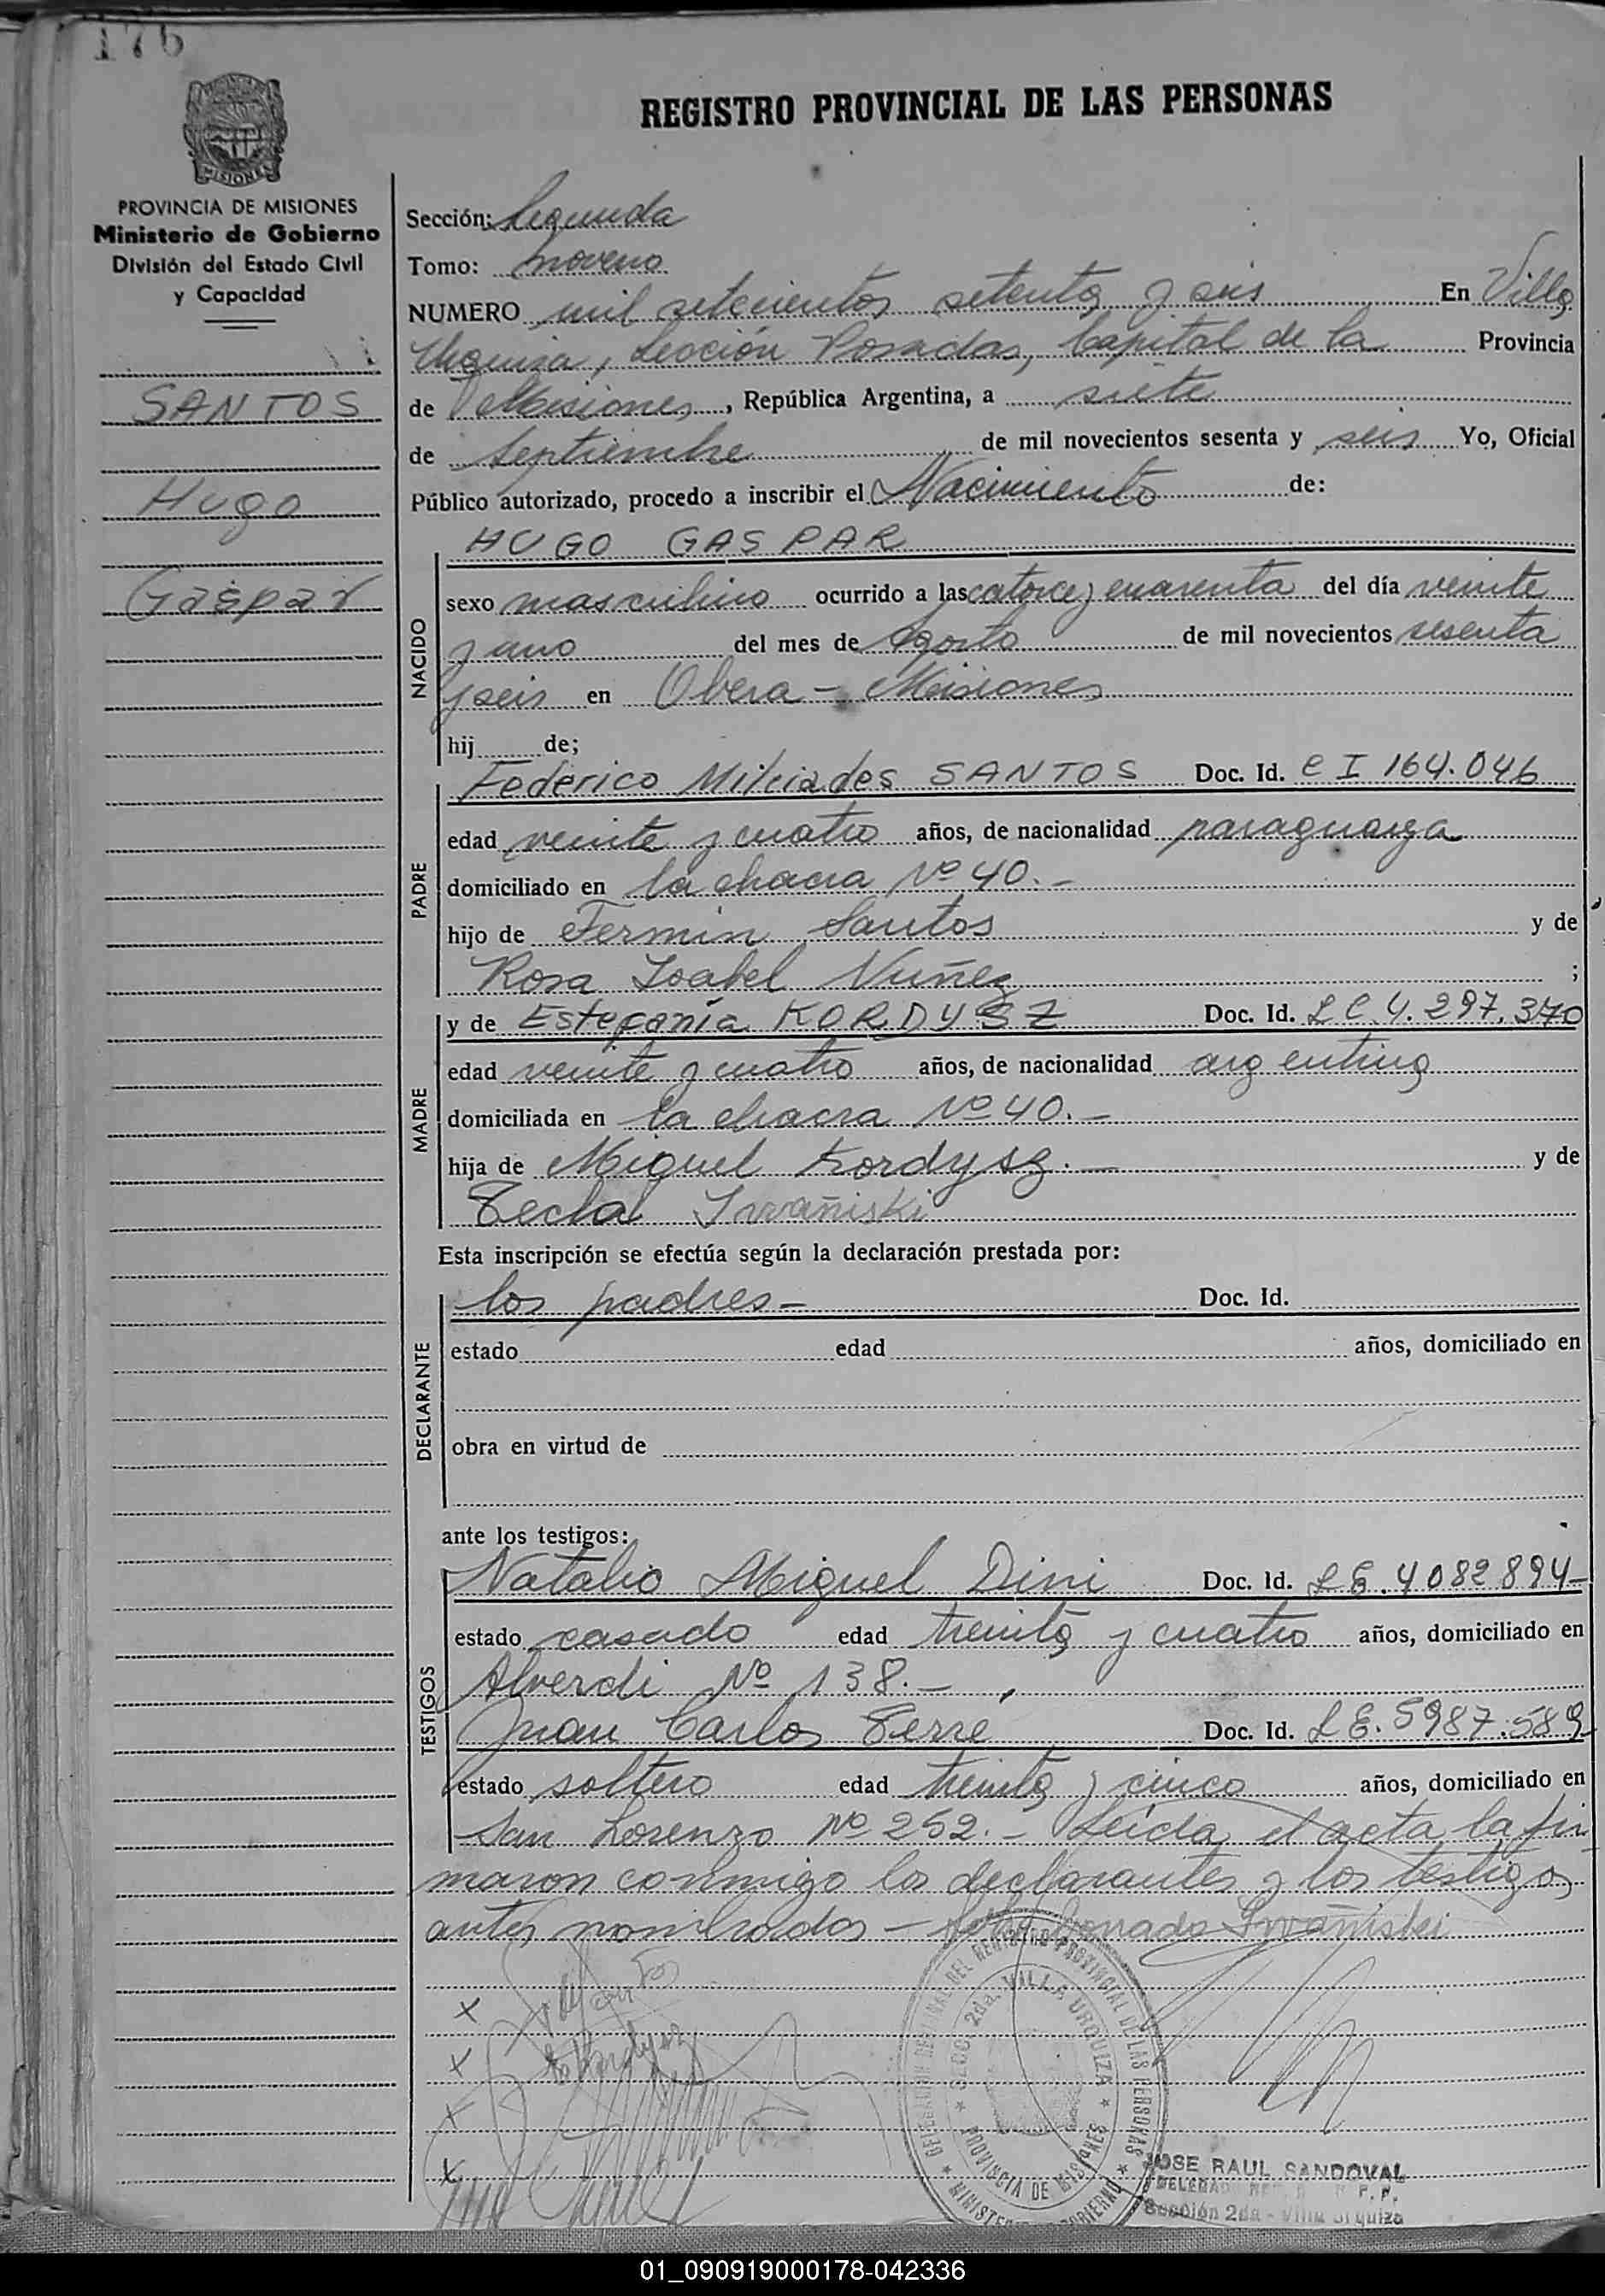 176
REGISTRO PROVINCIAL DE LAS PERSONAS
MISIONES
PROVINCIA DE MISIONES
Ministerio de Gobierno
División del Estado Civil
y Capacidad
SANTOS
Hugo
Gaspar
Sección: Segunda
Tomo: noveno
NUMERO mil setecientos setenta y seis En Villa
Urquiza, Sección Posadas, Capital de la Provincia
de Misiones, República Argentina, a siete
de Septiembre de mil novecientos sesenta y seis Yo, Oficial
Público autorizado, procedo a inscribir el Nacimiento de:
HUGO GASPAR
NACIDO
sexo masculino ocurrido a las catorce y cuarenta del día veinte
y uno del mes de Agosto de mil novecientos sesenta
y seis en Obera - Misiones
hij de;
PADRE
Federico Milciades SANTOS Doc. Id. C I 164.046
edad veinte y cuatro años, de nacionalidad paraguaya
domiciliado en la chacra Nº 40.-
hijo de Fermin Santos y de
Rosa Isabel Nuñez ;
MADRE
y de Estefanía KORDYSZ Doc. Id. L C 4.297.370
edad veinte y cuatro años, de nacionalidad argentina
domiciliada en la chacra Nº 40.-
hija de Miguel Kordysz.- y de
Tecla Iwañiski
Esta inscripción se efectúa según la declaración prestada por:
DECLARANTE
los padres- Doc. Id.
estado edad años, domiciliado en
obra en virtud de
ante los testigos:
TESTIGOS
Natalio Miguel Dini Doc. Id. L E. 4082894-
estado casado edad treinta y cuatro años, domiciliado en
Alverdi Nº 138.-
Juan Carlos Ferré Doc. Id. L E. 5987.589
estado soltero edad treinta y cinco años, domiciliado en
San Lorenzo Nº 252.- Leída el acta, la fir
maron conmigo los declarantes y los testigos
antes nombrados - Iwañiski
DELEGACION DEL REGISTRO PROVINCIAL DE LAS PERSONAS
SECC. 2da. VILLA URQUIZA
PROVINCIA DE MISIONES
JOSE RAUL SANDOVAL
Sección 2da - Villa Urquiza
01_090919000178-042336